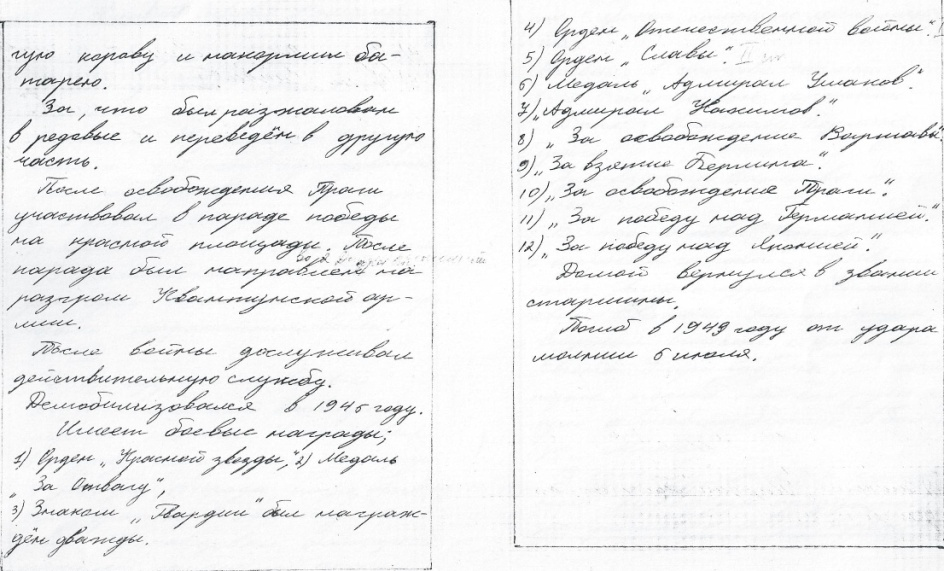 гую корову и накормил ба-
тарею.
За, что был разжалован
в редовые и переведён в другую
часть.
После освобождения Праги
участвовал в параде победы
на красной площади. После
парада был направлен на
разгром Квантунской ар-
мии.
После войны дослуживал
действительную службу.
Демобилизовался в 1946 году.
Имеет боевые награды;
1) Орден „Красной звезды", 2) Медаль
„За Отвагу",
3) Знаком „Гвардии" был награж-
дён дважды.
4) Орден „Отечественной войны".
5) Орден „Славы". II
6) Медаль „Адмирал Ушаков".
7) „Адмирал Нахимов"
8) „За освобождение Варшавы".
9) „За взятие Берлина".
10) „За освобождение Праги".
11) „За победу над Германией."
12) „За победу над Японией."
Домой вернулся в звании
старшины.
Погиб в 1949 году от удара
молнии 6 июля.